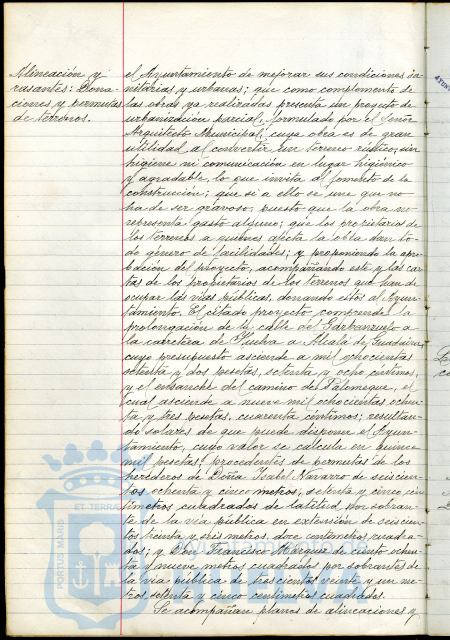 Alineación y
rasantes: Dona-
ciones y permutas
de terrenos.
el Ayuntamiento de mejorar sus condiciones sa-
nitarias y urbanas; que como complemento de
las obras ya realizadas presenta un proyecto de
urbanización parcial, formulado por el Señor
Arquitecto Municipal, cuya obra es de gran
utilidad al convertir un terreno rústico, sin
higiene ni comunicación en lugar higiénico
y agradable, lo que invita al fomento de la
construcción; que si a ello se une que no
ha de ser gravoso, puesto que la obra no
representa gasto alguno; que los propietarios de
los terrenos a quienes afecta la obra dan to-
do género de facilidades; y proponiendo la apro-
bación del proyecto, acompañando este y las car-
tas de los propietarios de los terrenos que han de
ocupar las vías públicas, donando estos al Ayun-
tamiento. El citado proyecto comprende la
prolongación de la calle del Garbanzuelo a
la carretera de Huelva a Alcalá de Guadaira,
cuyo presupuesto asciende a mil ochocientas
setenta y dos pesetas, setenta y ocho céntimos,
y el ensanche del camino de Palomeque, el
cual asciende a nueve mil ochocientas ochen-
ta y tres pesetas, cuarenta céntimos; resultan-
do solares de que puede disponer el Ayun-
tamiento, cuyo valor se calcula en quince
mil pesetas, procedentes de permutas de los
herederos de Doña Isabel Navarro de seiscien-
tos ochenta y cinco metros, setenta y cinco cen-
tímetros cuadrados de latitud, por sobran-
te de la vía pública en extensión de seiscien-
tos treinta y seis metros, doce centímetros cuadra-
dos; y Don Francisco Márquez de ciento ochen-
ta y nueve metros cuadrados por sobrantes de
la vía pública de trescientos veinte y un me-
tros setenta y cinco centímetros cuadrados.
Se acompañan planos de alineaciones y
ET TERRA
PORTUS MARIS